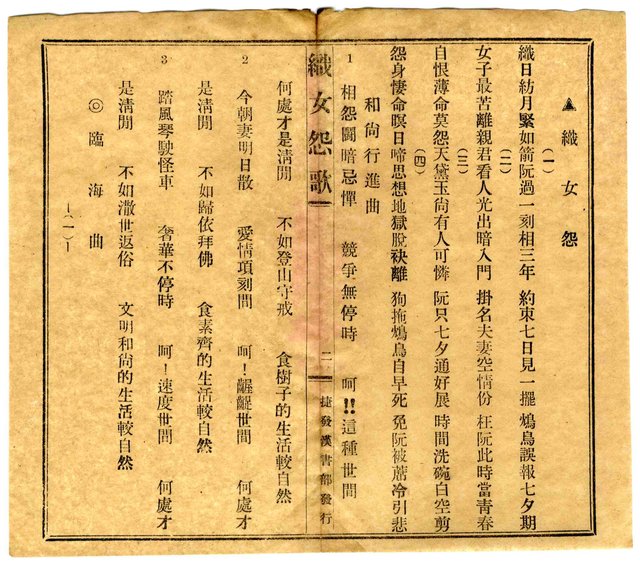 ▲織女怨
(一)
織日紡月緊如箭阮過一刻相三年 約束七日見一擺 鴆鳥誤報七夕期
(二)
女子最苦離親君看人光出暗入門 掛名夫妻空情份 枉阮此時當青春
(三)
自恨薄命莫怨天黛玉尙有人可憐 阮只七夕通好展 時間洗碗白空剪
(四)
怨身悽命瞑日啼思想地獄脫袂離 狗拖鴆鳥自早死 免阮被蓆冷引悲
和尙行進曲
1 相怨鬪暗忌憚 競爭無停時 呵!!這種世間
織女怨歌 二 捷發漢書部發行
何處才是淸閒 不如登山守戒 食樹子的生活較自然
2 今朝妻明日散 愛情項刻間 呵!齷齪世間 何處才
是淸閒 不如歸依拜佛 食素齊的生活較自然
3 踏風琴駛怪車 奢華不停時 呵!速度世間 何處才
是淸閒 不如澈世返俗 文明和尙的生活較自然
◎臨海曲
—(一)—